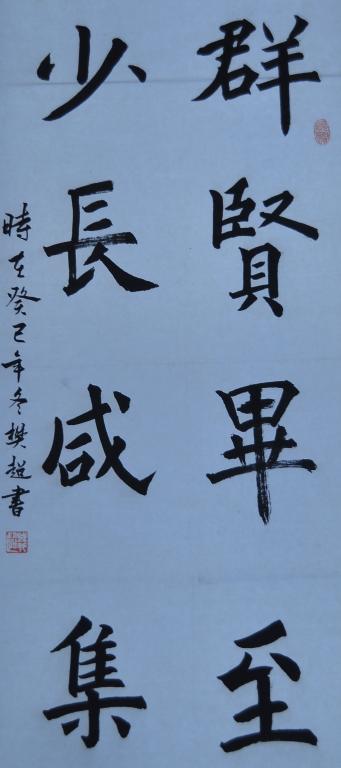 群賢畢至
少長咸集
時在癸巳年冬樊超書